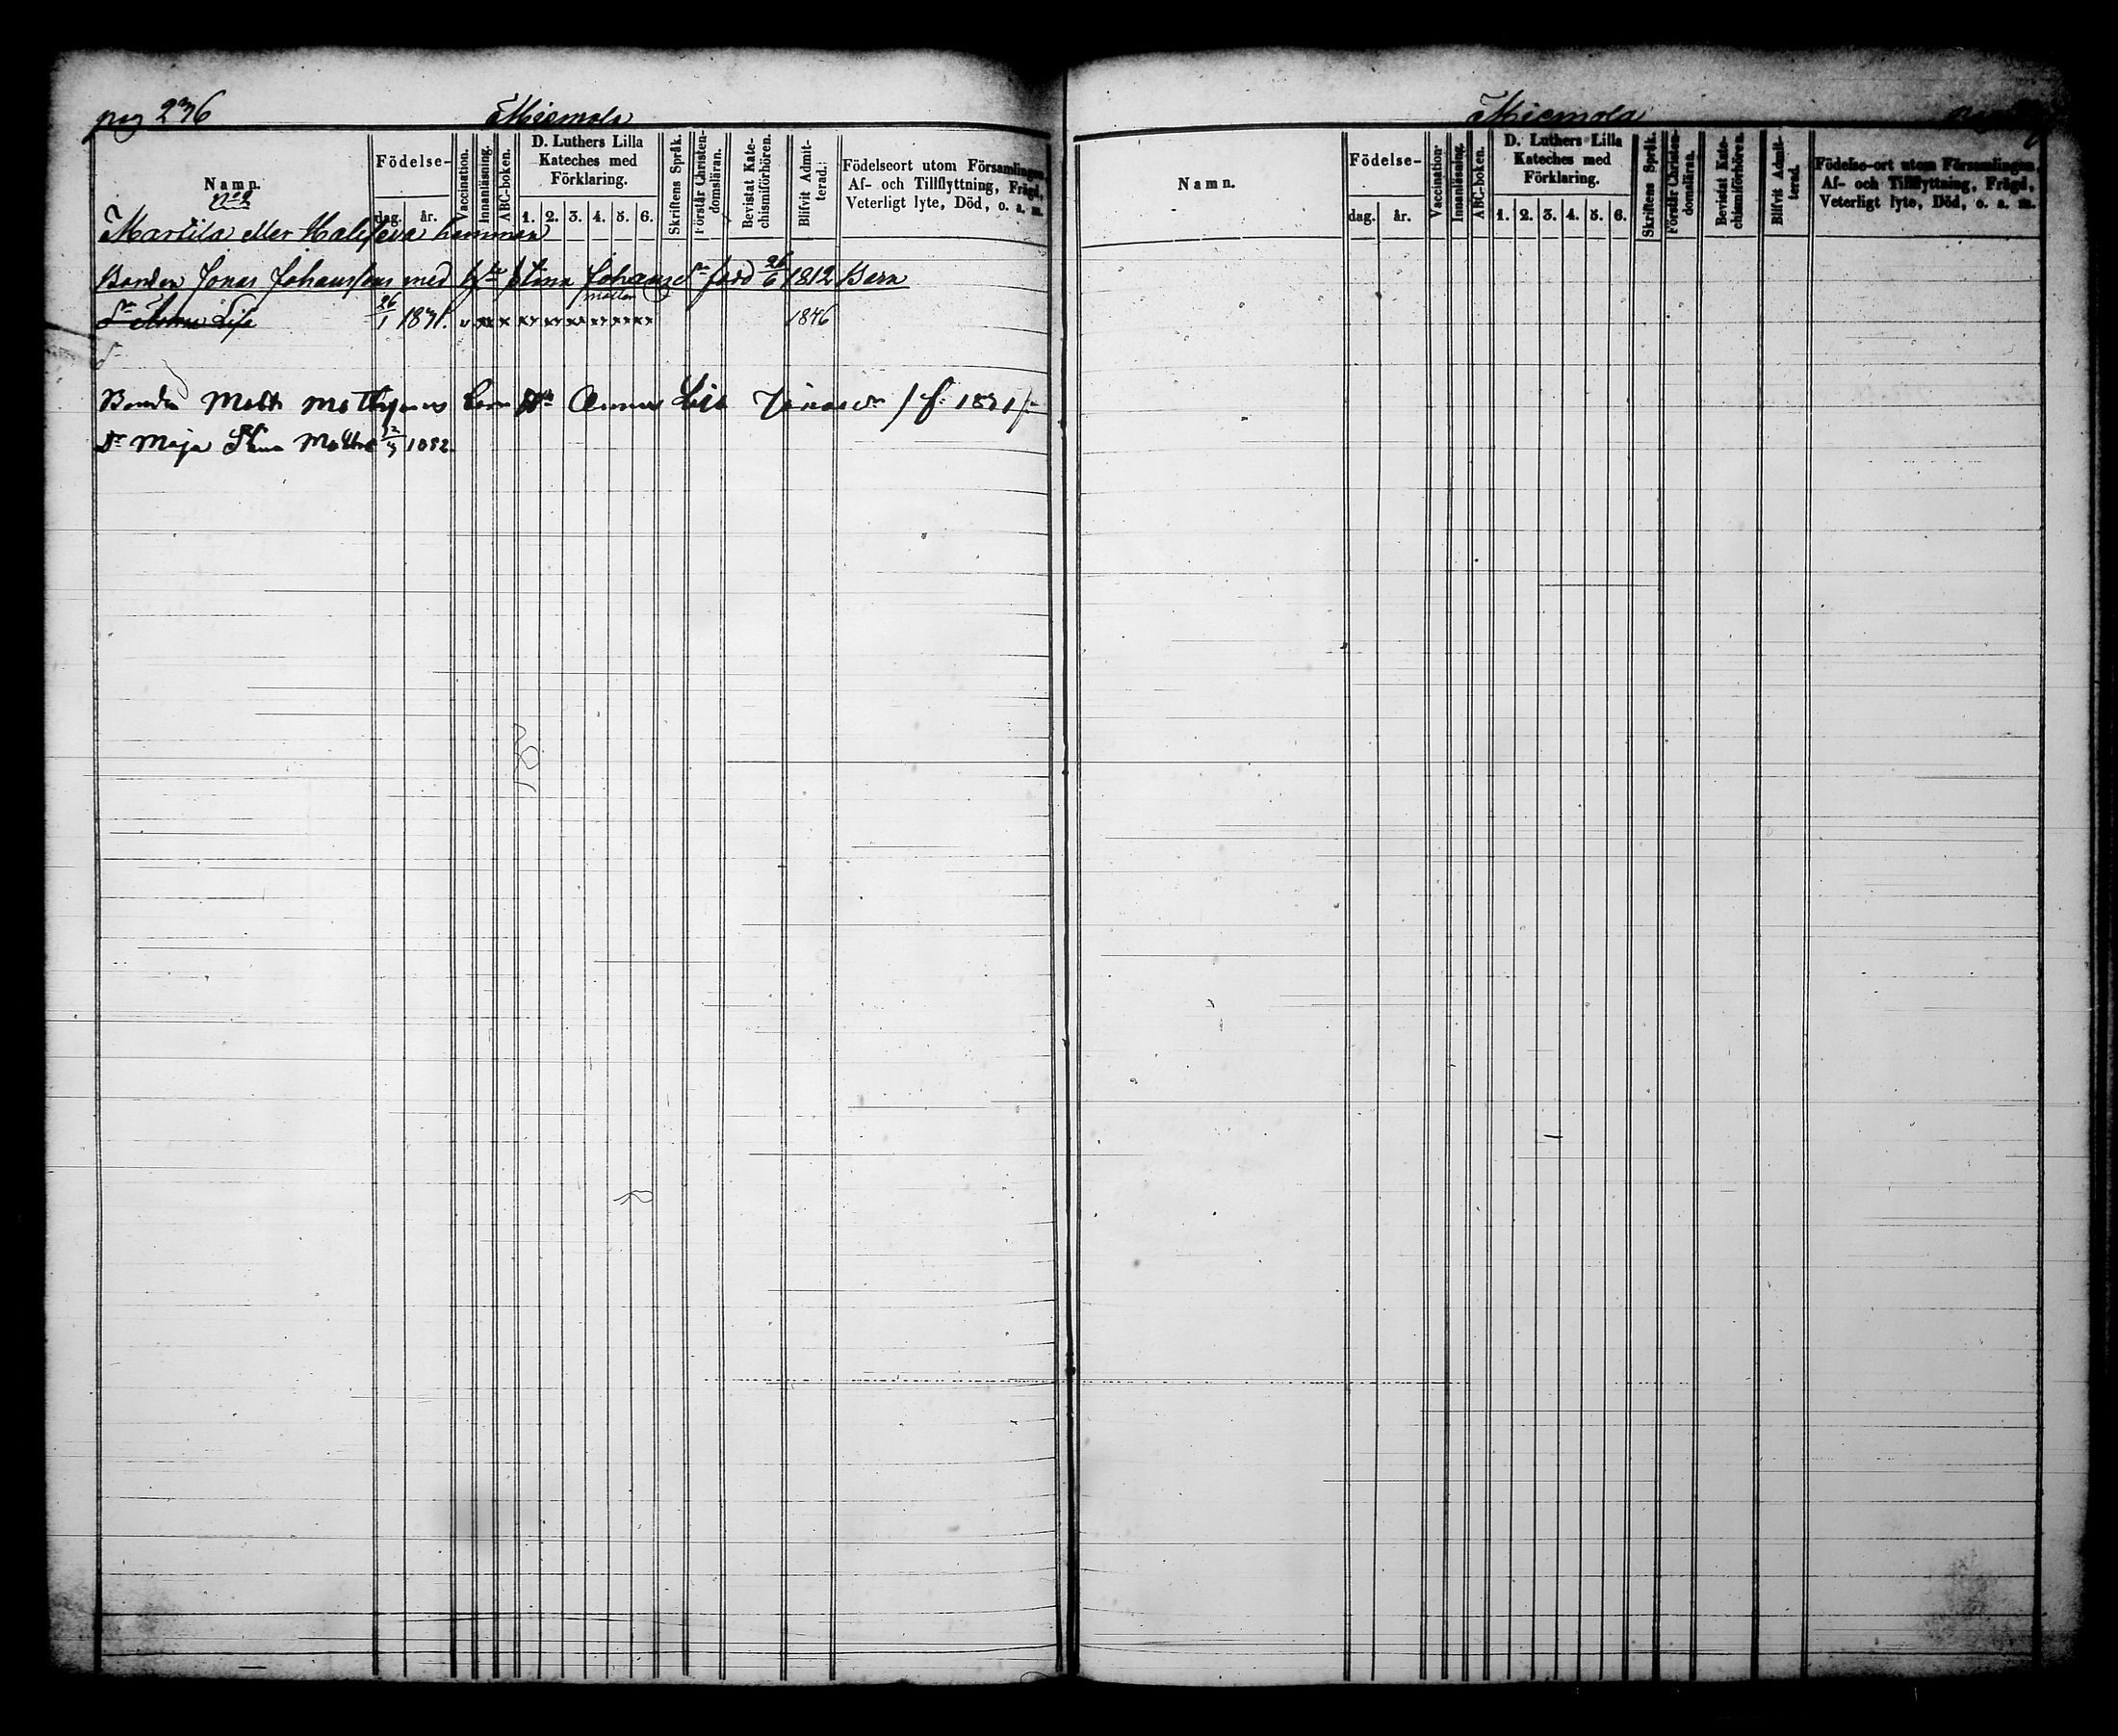 pag 236
Miemola
Namn.
Födelse-
dag.
år.
Vaccination.
Innanläsning.
ABC-boken.
D. Luthers Lilla
Kateches med
Förklaring.
1. 2. 3. 4. 5. 6.
Skriftens Språk.
Förstår Christen-
domsläran.
Bevistat Kate-
chismiförhören.
Blifvit Admit-
terad.
Födelseort utom Församlingen,
Af- och Tillflyttning, Frägd,
Veterligt lyte, Död, o. a. m.
No 2
Martila eller hemman
Bonden Jonas Johansson med Stina Johansdr född 26/6 1812 Barn
Dr Anna Lisa 26/1 1831. 1846
Bonden Matts Mattsson Barn Anna Lis Jonasdr / f. 1831/
Dr Maja Stina Mattsd 1852
Miemola
Namn.
Födelse-
dag.
år.
Vaccination.
Innanläsning.
ABC-boken.
D. Luthers Lilla
Kateches med
Förklaring.
1. 2. 3. 4. 5. 6.
Skriftens Språk.
Förstår Christen-
domsläran.
Bevistat Kate-
chismiförhören.
Blifvit Admit-
terad.
Födelse-ort utom Församlingen,
Af- och Tillflyttning, Frägd,
Veterligt lyte, Död, o. a. m.